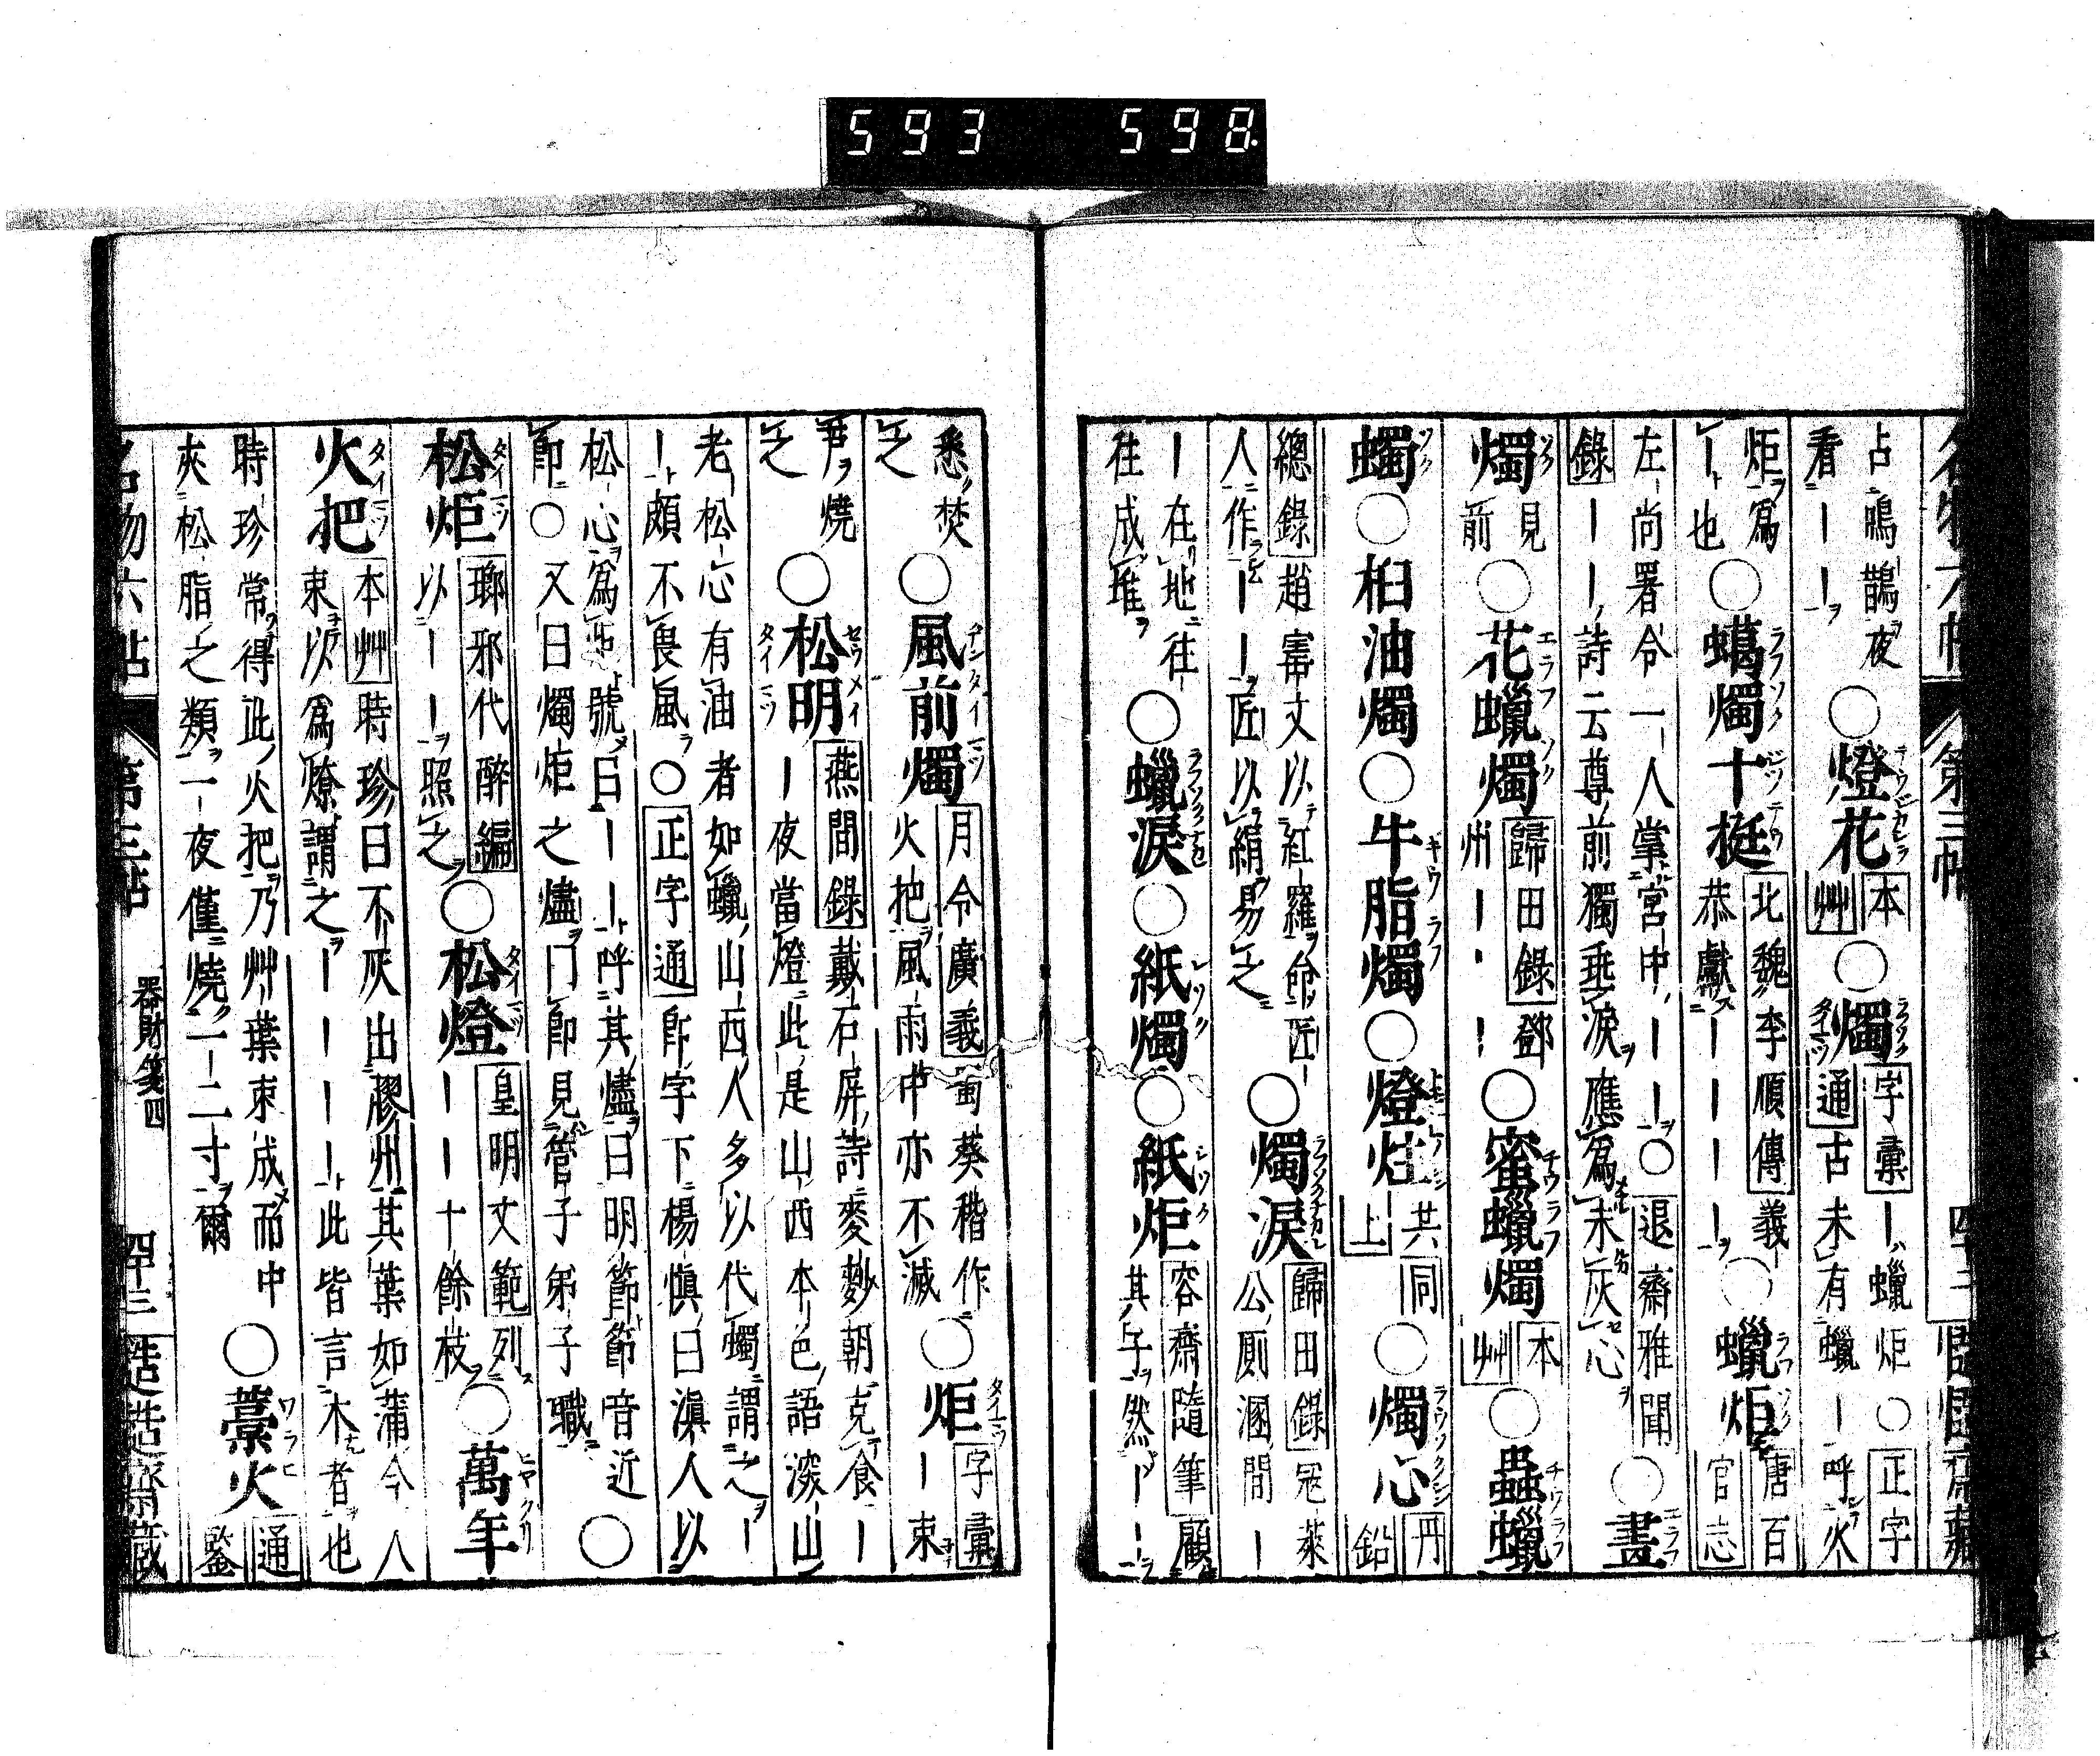 593 598
占鳴鵲夜
看｜｜｜
○燈花
本
艸
○燭
字彙｜蠟炬○正字
通古未有蠟｜呼火
炬爲
｜也
○蠟燭十挺
北魏李順傳義
恭獻｜｜｜｜｜
○蠟炬
唐百
官志
左尚署令一人掌宮中｜｜○退齋雅聞
錄｜｜｜詩云尊前獨垂淚應爲未灰心
○畫
燭
見
前
○花蠟燭
歸田錄鄧
州｜｜｜
○蜜蠟燭
本
艸
○蟲蠟
蠋○桕油燭○牛脂燭○燈炷
共同
上
○燭心
丹
鉛
總錄趙文以紅羅命匠
人作｜｜｜匠以絹易之
○燭淚
歸田錄冦萊
公厠溷間｜
｜在地往
往成堆
○蠟淚○紙燭○紙炬
容齋隨筆顧
其子然｜｜
悉焚
之
○風前燭
月令廣義蜀葵稭作
火把風雨中亦不滅
○炬
字彙
｜束
燒
之
○松明
燕間錄戴石屏詩麥麨朝充食｜
｜夜當燈此是山西本色語深山
老松心有油者如蠟山西人多以代蠋謂之｜
｜頗不畏風○正字通卽字下楊愼曰滇人以
松心爲號曰｜｜｜呼其燼曰明節節音近
卽○又曰燭炬之燼曰卽見管子弟子職
○
松炬
瑯邪代醉編
以｜｜｜照之
○松燈
皇明文範列
｜｜｜十餘枝
○萬年
火把
本艸時珍曰不灰出膠州其葉如蒲今人
束以爲燎謂之｜｜｜｜｜此皆言木者也
時珍常得此火把乃艸葉束成而中
夾松脂之類一夜僅燒一二寸爾
○藁火
通
鑒
第三帖
器財箋四
四十三